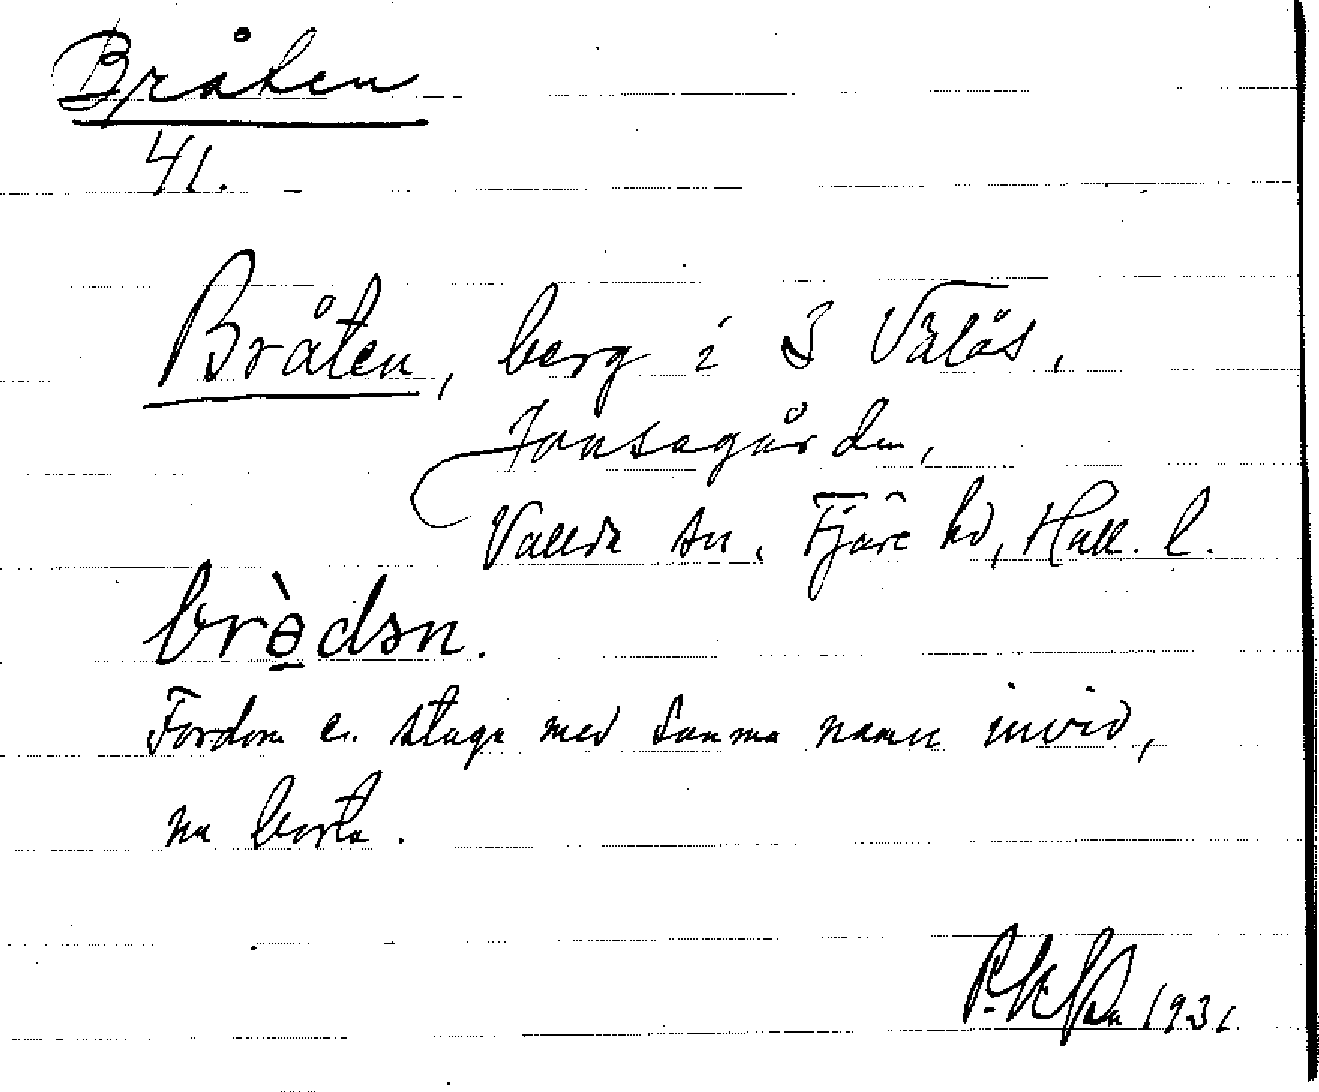 Bråten
41.
Bråten, berg i S Välås,
Jonsagården,
Vallda sn. Fjäre hd, Hall. l.
brò̱dən.
Fordom en stuga med samma namn invid,
nu borta.
1931.